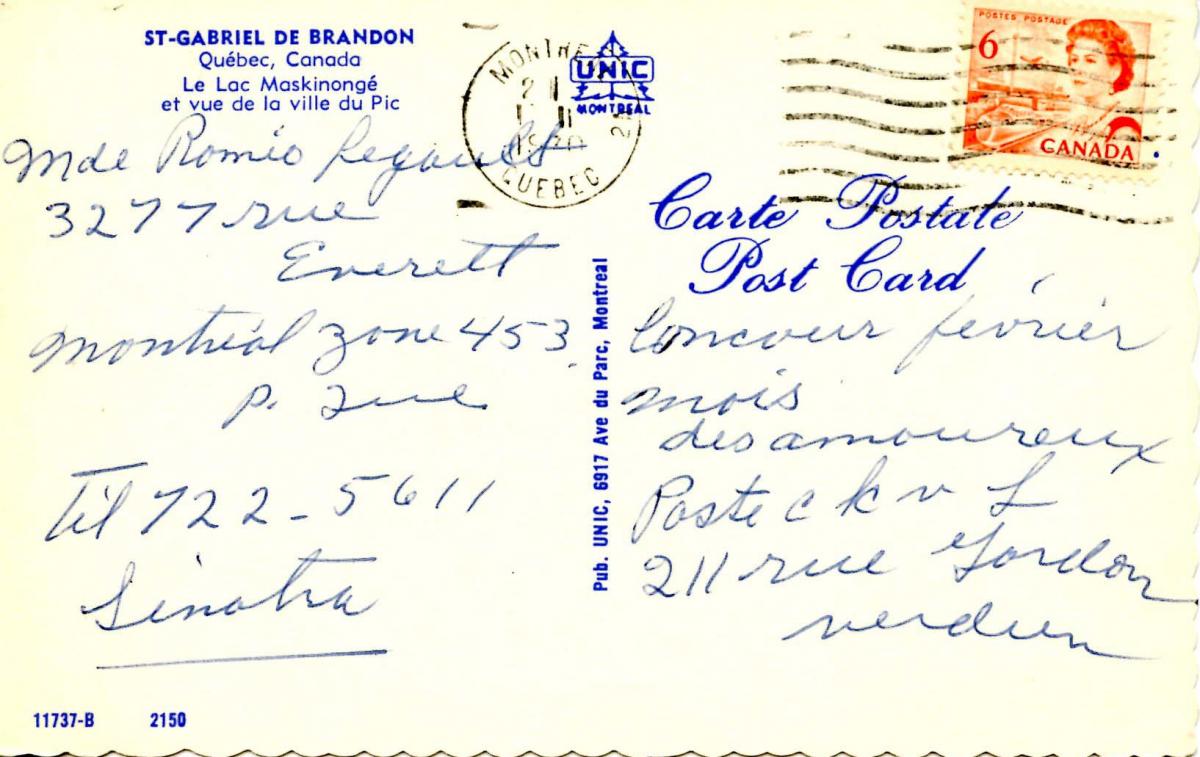 ST-GABRIEL DE BRANDON
Québec, Canada
Le Lac Maskinongé
et vue de la ville du Pic
Mde Roméo Legault
3277 rue
Everett
Montréal zone 453
P. Que
Tél 722-5611
Sinatra
11737-B 2150
MONTREAL
QUEBEC
UNIC
MONTREAL
Pub. UNIC, 6917 Ave du Parc, Montreal
POSTES POSTAGE
6
CANADA
Carte Postale
Post Card
Concour février
mois
des amoureux
Poste c k v L
211 rue Gordon
verdun